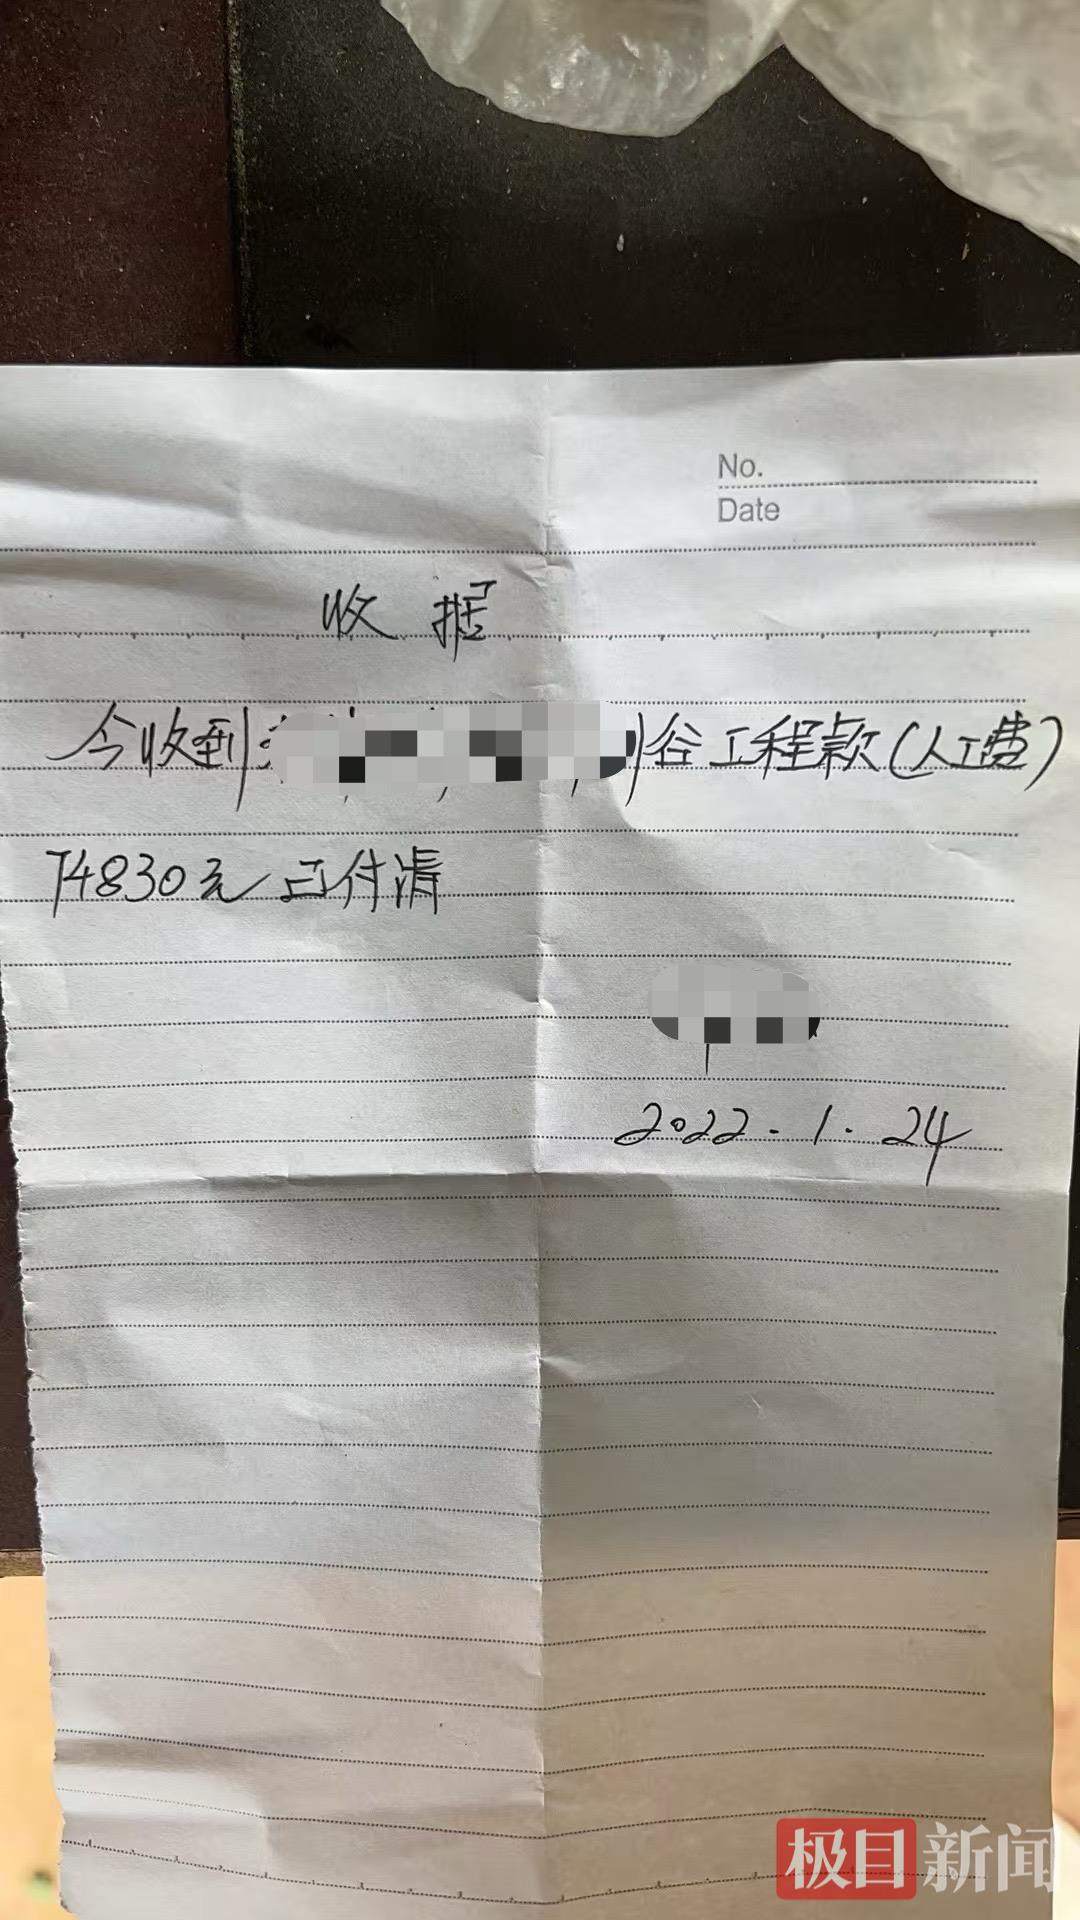 No.
Date
收据
今收到 谷工程款(人工费)
74830元 已付清
2022.1.24
极目新闻